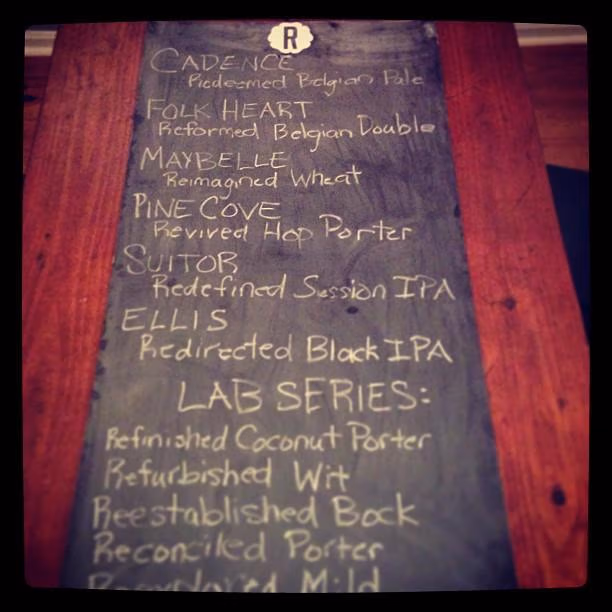 R
CADENCE
Redeemed Belgian Pale
FOLK HEART
Reformed Belgian Double
MAYBELLE
Reimagined Wheat
PINE COVE
Revived Hop Porter
SUITOR
Redefined Session IPA
ELLIS
Redirected Black IPA
LAB SERIES:
Refinished Coconut Porter
Refurbished Wit
Reestablished Bock
Reconciled Porter
Mild